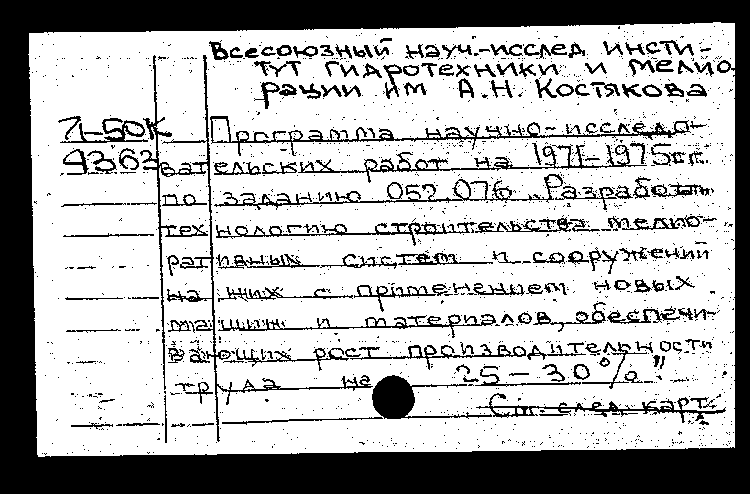 Всесоюзный науч.-исслед. инсти-
тут гидротехники и мелио
рации им А.Н. Костякова
71-50К Программа научно-исследо-
4363 вательских работ на 1971-1975гг.
по заданию 052.076 „Разработать
технологию строительства мелио-
ративных систем и сооружений
на них с применением новых
машин и материалов, обеспечи-
вающих рост производительности
труда на 25-30%".
См. след. карт.